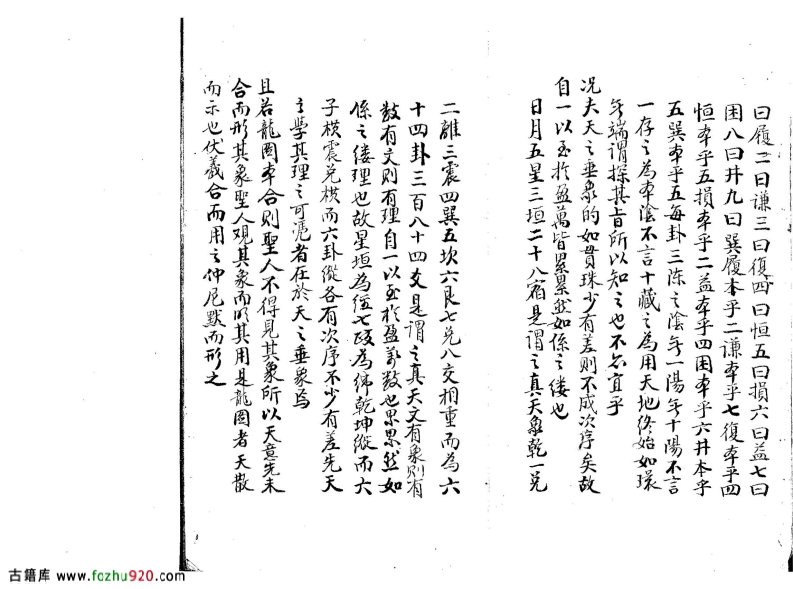 曰履二曰谦三曰復四曰恒五曰損六曰益七曰
困八曰井九曰巽履本乎二谦夲乎七復夲乎四
恒夲乎五損夲乎二益夲乎四困夲乎六井本乎
五巽夲乎五每卦三陈之陰
一存之為夲陰不言十藏之為用天地終始如環
年端谓探其旨所以知之也不亦宜乎
况夫天之垂象的如貫珠少有差則不成次序矣故
自一以至於盈萬皆累累然如係之缕也
日月五星三垣二十八宿是谓之真天象乾一兑
二離三震四巽五坎六艮七兑八交相重而為六
十四卦三百八十四爻是謂之真天文有象則有
数有文則有理自一以至於盈萬数也累累然如
係之缕理也故星垣為经七政為緯乾坤縱而六
子横震兑横而六卦縱各有次序不少有差先天
之學其理之可
者在於天之垂象焉
且若龍圖夲合則聖人不得見其象所以天意先未
合而形其象聖人观其象而明其用是龍圖者天散
而示也伏羲合而用之仲尼默而形之
古籍库 www.fozhu920.com